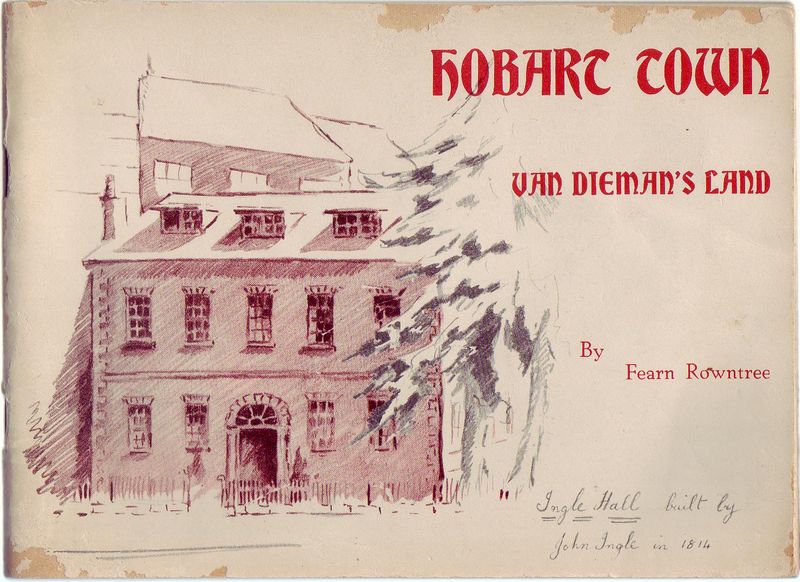 HOBART TOWN
VAN DIEMAN'S LAND
By
Fearn Rowntree
Ingle Hall built by
John Ingle in 1814